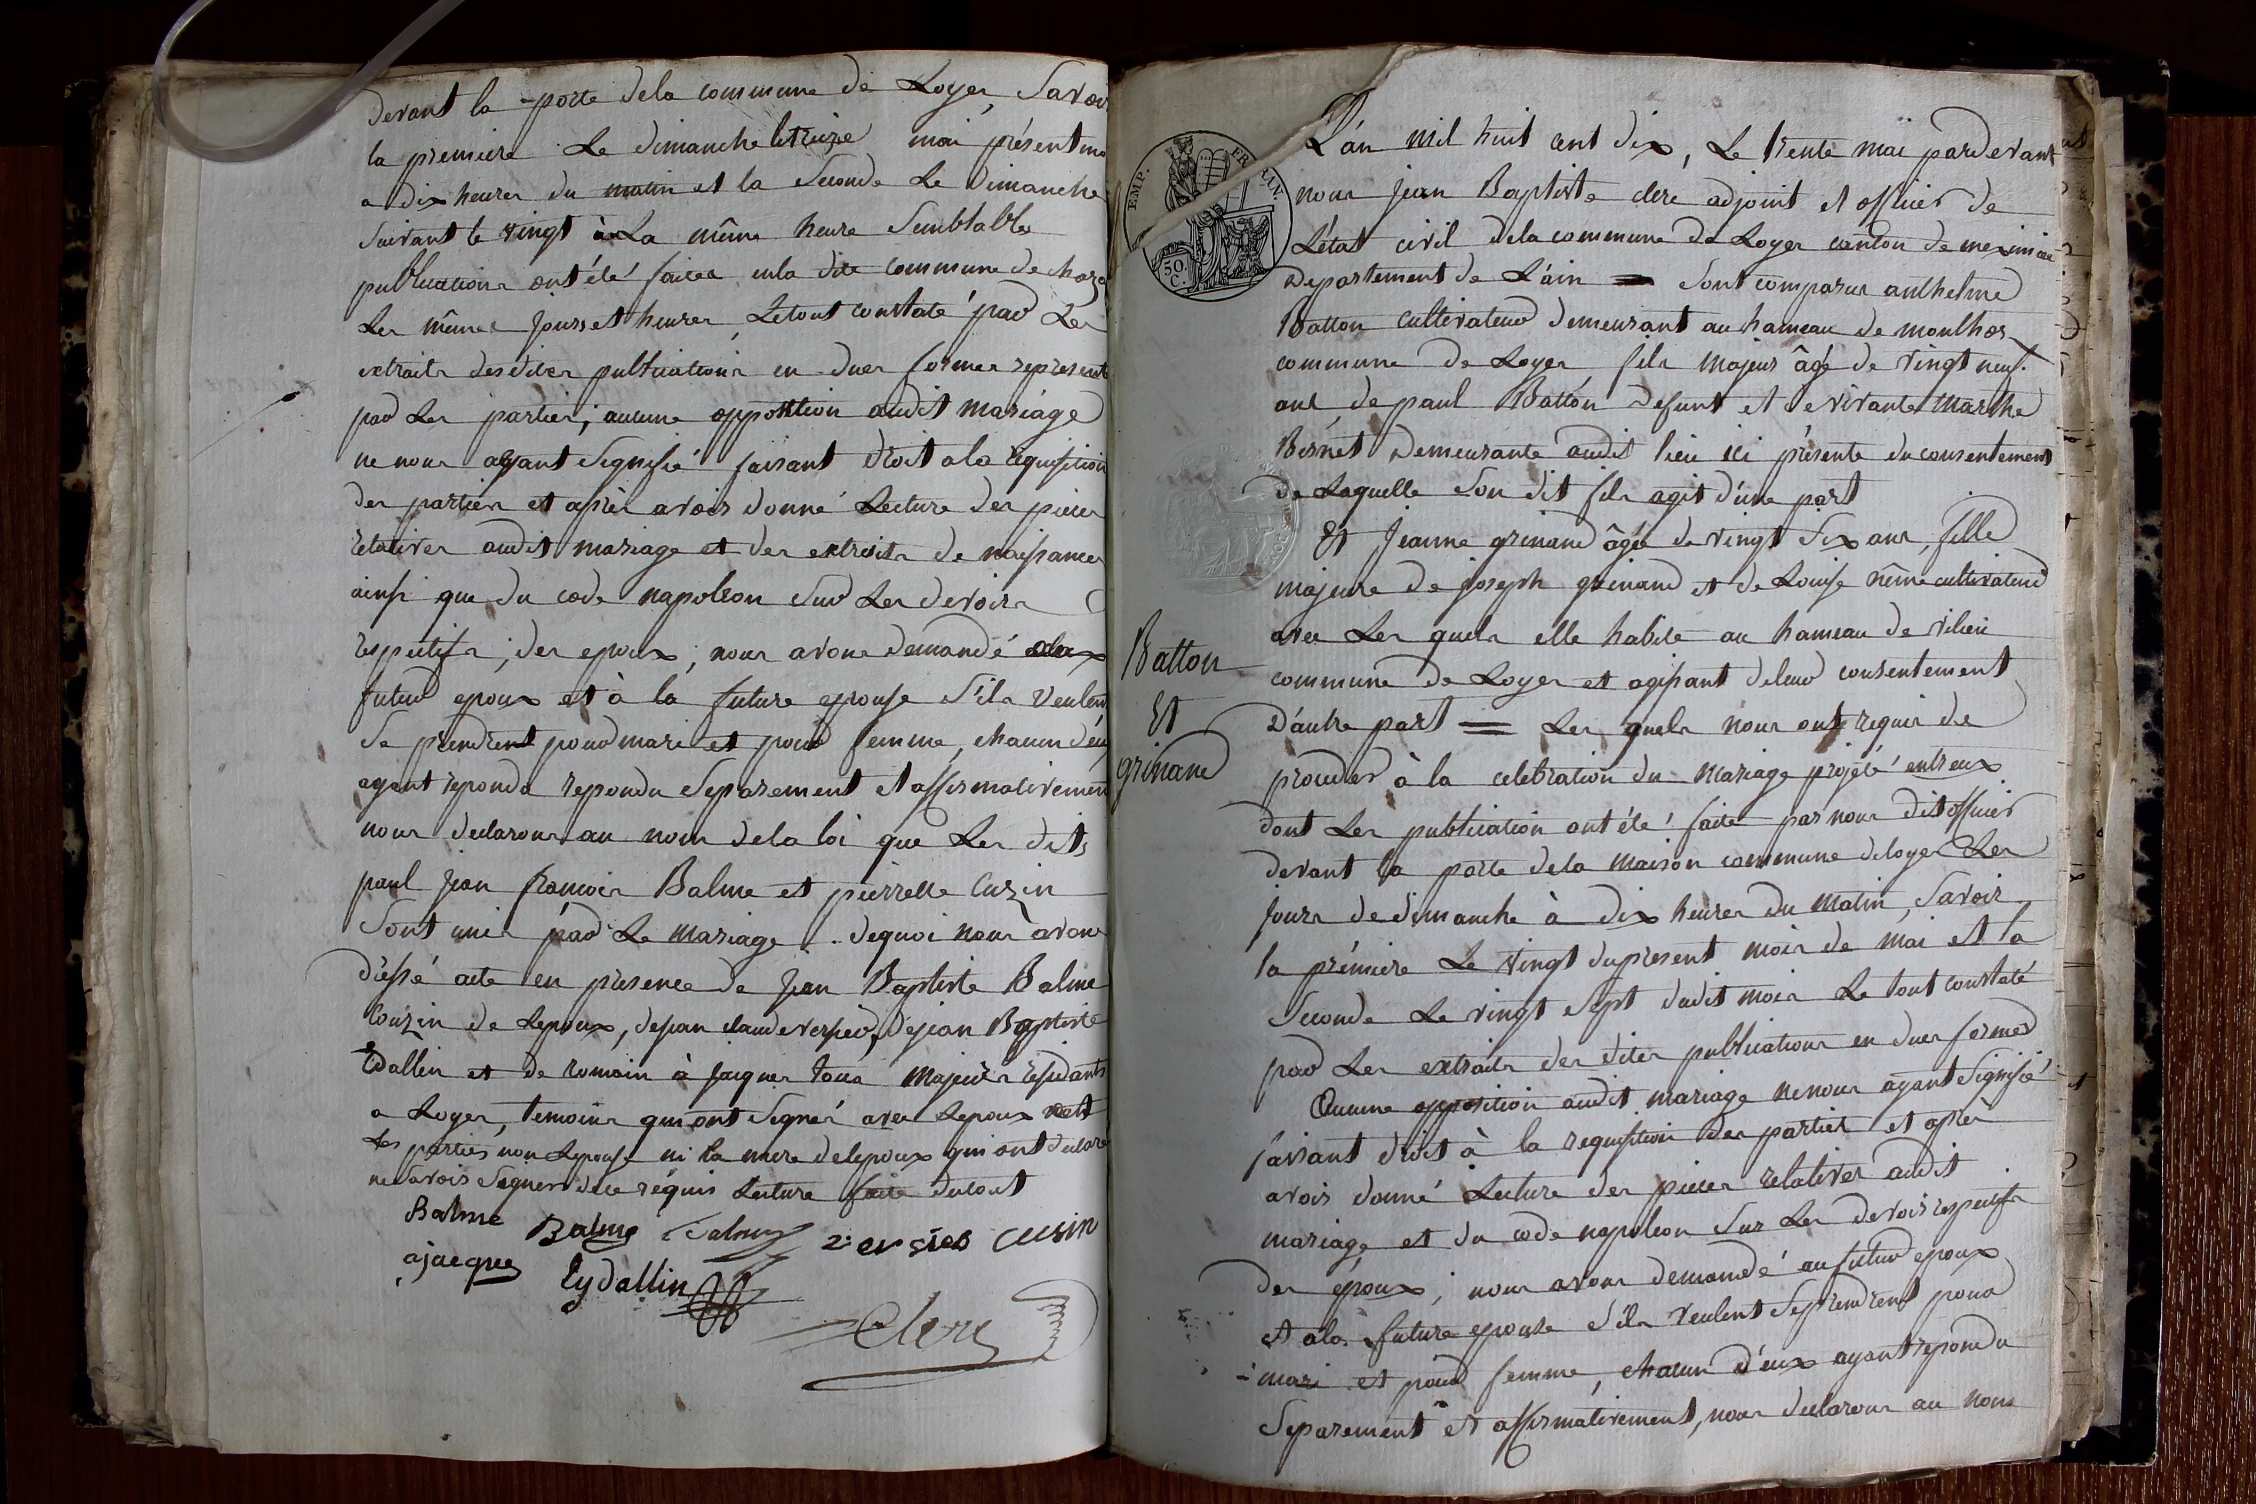 devant la porte dela commune de Loyes Savoir
la premiere Le dimanche letreize mai présent mo
a dix heures du matin et la Seconde Le Dimanche
Suivant le vingt à La même heure Semblables
publications ont été faites enla dite commune de chaz
Les mêmes jours et heures Letout constaté par Les
extraits desdites publications en dues formes representé
par Les parties; aucune opposition audit mariage
ne nous ayant Signifié faisant droit ala requisition
des parties et après avoir donné Lecture des pieces
relatives audit mariage et des extraits de naissances
ainsi que du code napoleon Sur Les devoirs
respectifs, des epoux; nous avons demandé au
futur epoux et à la future epouse S'ils veulent
Se prendrent pour mari et pour femme, chacun d'eux
ayant repondu repondu Separement et affirmativement
nous declarons au nom dela loi que Les dits
paul jean francois Balme et pierrette Cuzin
Sont unis par Le mariage. dequoi nous avons
dressé acte en presence de jean Baptiste Balme
Couzin de Lepoux, dejean claude versieu, dejean Baptiste
Eydallin et de romain à jacques tous majeurs residants
a Loyes, temoins qui ont Signés avec Lepoux
Les parties non Lepouse ni la mere delepoux qui ont declaré
ne Savoir Signer dece réquis Lecture faite dutout
Balme Balme Balme versieu cusin
ajacques Eydallin
Clerc
EMP. FRAN.
50. C.
L'án mil huit cent dix, Le trente maï pardevant
nous jean Baptiste clerc adjoint et officier de
L'état civil dela commune de Loyes canton de meximieu
Departement de L'ain = Sont comparus anthelme
Batton Cultivateur demeurant au hameau de monthos
commune de Loyes fils majeur âgé de vingt neuf
ans de paul Batton defunt et de vivante Marthe
Bernet Demeurante audit lieu ici présente du consentement
de Laquelle Son dit fils agit d'une part
Et Jeanne grinand âgée de vingt Six ans, fille
majeure de joseph grinand et de Louise même cultivateurs
avec Les quels elle habite au hameau de vilieu
commune de Loyes et agissant deleur consentement
D'autre part = Les quels nous ont requis de
proceder à la celebration du mariage projeté entreux
dont Les publication ont été faite par nous dit officier
devant la porte dela maison commune deloyes Les
jours de dimanche à dix heures du matin, Savoir
la prémiere Le vingt dupresent mois de mai et la
Seconde Le vingt Sept dudit mois Le tout constaté
par Les extraits des dites publications en dues formes
Aucune opposition audit mariage nenous ayant Signifié
faisant droit à la requisition des parties et après
avoir donné Lecture des pieces relatives audit
mariage et du code napoleon Sur Les devoirs respectifs
des époux; nous avons demandé au futur epoux
et ala future epouse S'ils veulent Seprendrent pour
mari et pour femme, chacun d'eux ayant repondu
Separement et affirmativement, nous declarons au nom
Batton
Et
grinand